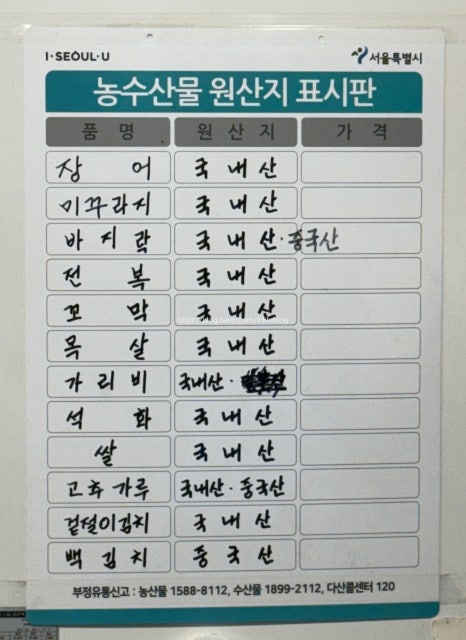 I·SEOUL·U 서울특별시
농수산물 원산지 표시판
품 명 원 산 지 가 격
장 어 국 내 산
미꾸라지 국 내 산
바 지 락 국 내 산·중국산
전 복 국 내 산
꼬 막 국 내 산
목 살 국 내 산
가 리 비 국내산 ·
석 화 국 내 산
쌀 국 내 산
고추 가루 국내산 · 중국산
겉절이김치 국 내 산
백 김 치 중 국 산
부정유통신고 : 농산물 1588-8112, 수산물 1899-2112, 다산콜센터 120